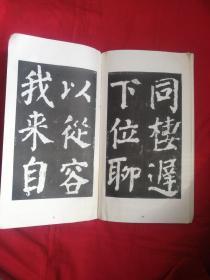 同棲遲
下位聊
以從容
我来自